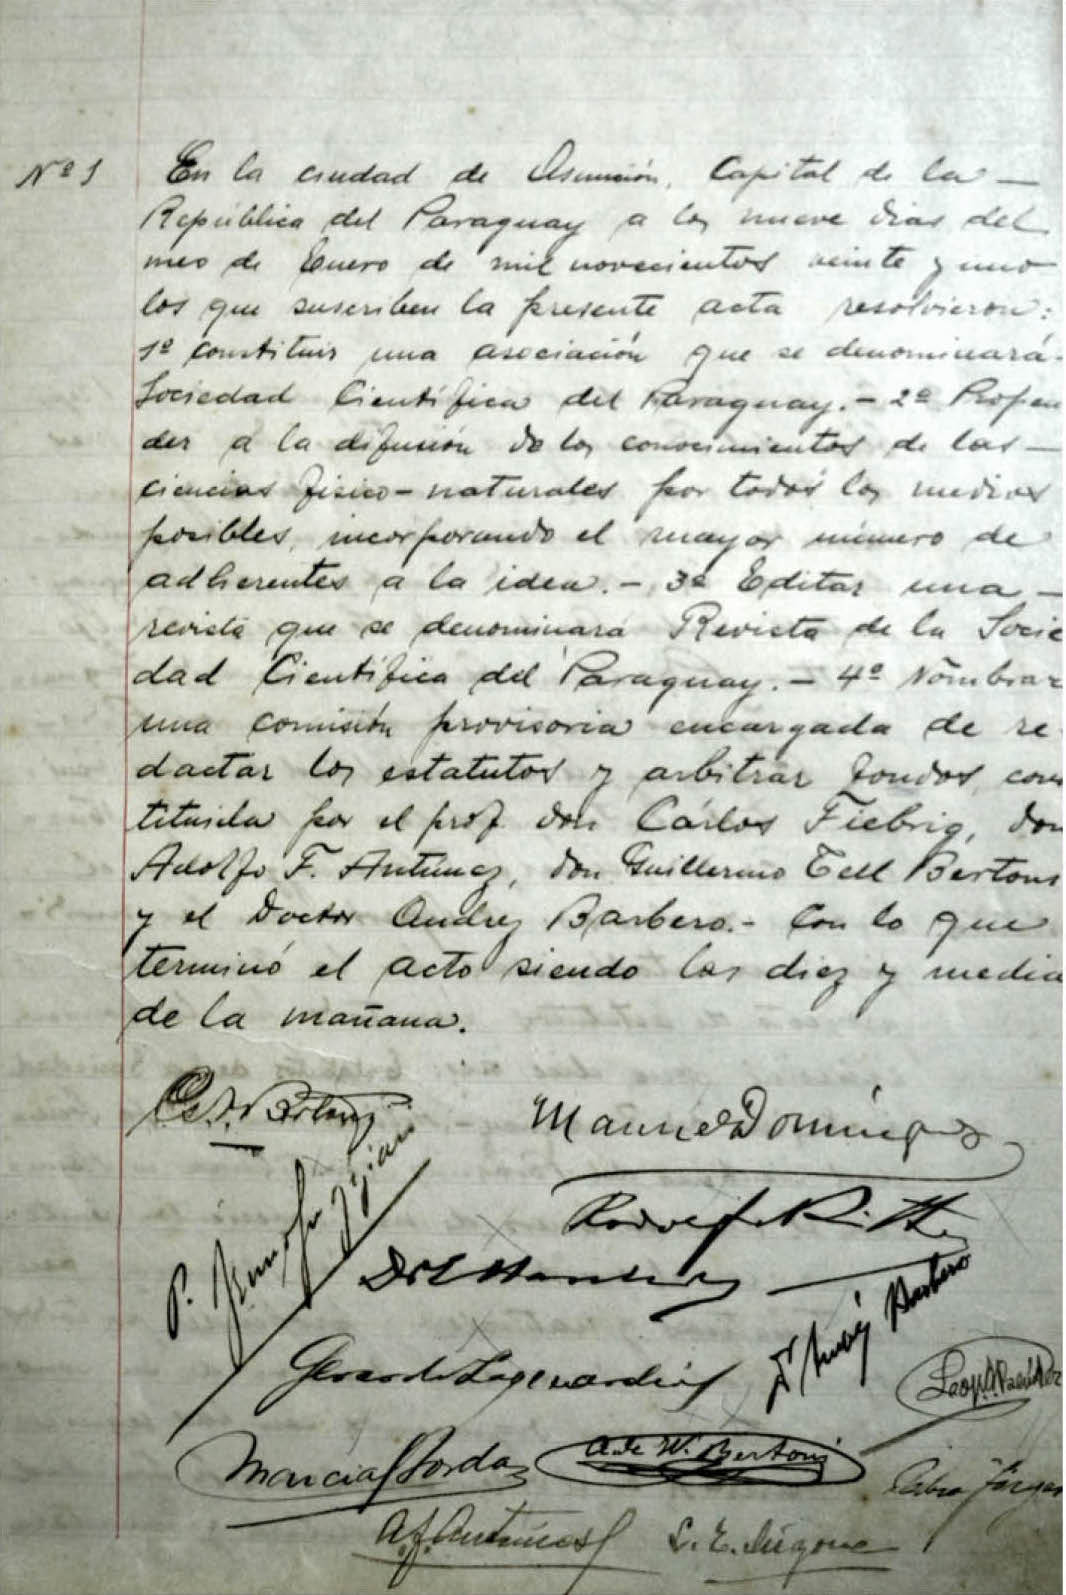 Nº 1
En la ciudad de Asunción, Capital de la —
República del Paraguay a los nueve dias del
mes de Enero de mil novecientos veinte y uno
los que suscriben la presente acta resolvieron:
1º constituir una asociación que se denominará
Sociedad Científica del Paraguay. - 2º Propen
der a la difusión de los conocimientos de las —
ciencias fisico-naturales por todos los medios
posibles, incorporando el mayor número de
adherentes a la idea. - 3º Editar una —
revista que se denominará Revista de la Socie
dad Científica del Paraguay. - 4º Nombrar
una comisión provisoria encargada de re
dactar los estatutos y arbitrar fondos, cons
tituida por el prof. don Cárlos Fiebrig, don
Adolfo F. Antunez, don Guillermo Tell Bertoni
y el Doctor Andres Barbero. - Con lo que
terminó el acto siendo las diez y media
de la mañana.
Manuel Dominguez
Rodolfo Ritter
Dr Andrés Barbero
Gerardo Laguardia
A. de W. Bertoni
A. F. Antúnez